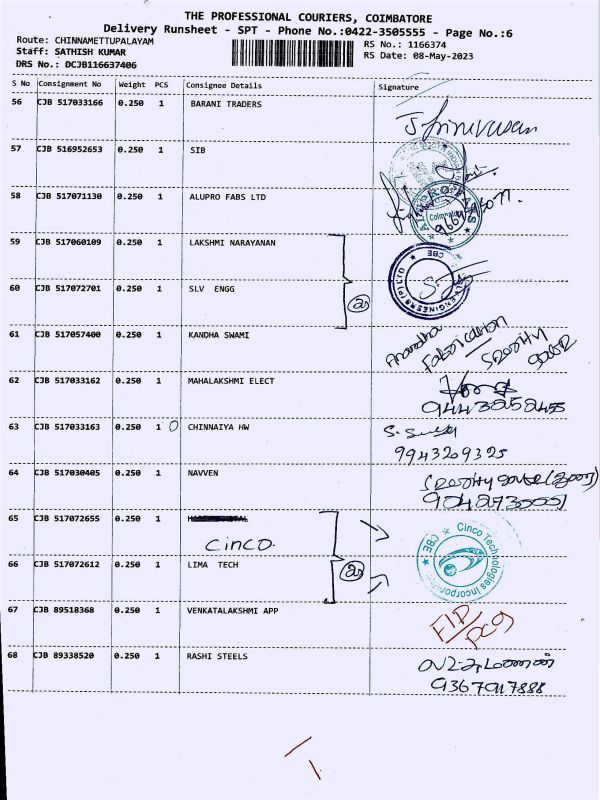 THE PROFESSIONAL COURIERS, COIMBATORE
Delivery Runsheet - SPT - Phone No.:0422-3505555 - Page No.:6
Route: CHINNAMETTUPALAYAM
Staff: SATHISH KUMAR
DRS No.: DCJB116637406
RS No.: 1166374
RS Date: 08-May-2023
S No Consignment No Weight PCS Consignee Details Signature
56 CJB 517033166 0.250 1 BARANI TRADERS
J Srinivasan
57 CJB 516952653 0.250 1 SIB
58 CJB 517071130 0.250 1 ALUPRO FABS LTD
59 CJB 517060109 0.250 1 LAKSHMI NARAYANAN
CBE
60 CJB 517072701 0.250 1 SLV ENGG
61 CJB 517057400 0.250 1 KANDHA SWAMI
Fabrication
62 CJB 517033162 0.250 1 MAHALAKSHMI ELECT
9443252455
63 CJB 517033163 0.250 1 0 CHINNAIYA HW
9943209325
64 CJB 517030405 0.250 1 NAVVEN
65 CJB 517072655 0.250 1
CINCO.
Cinco Technologies Incorporation
CBE
66 CJB 517072612 0.250 1 LIMA TECH
67 CJB 89518368 0.250 1 VENKATALAKSHMI APP
68 CJB 89338520 0.250 1 RASHI STEELS
9367917888